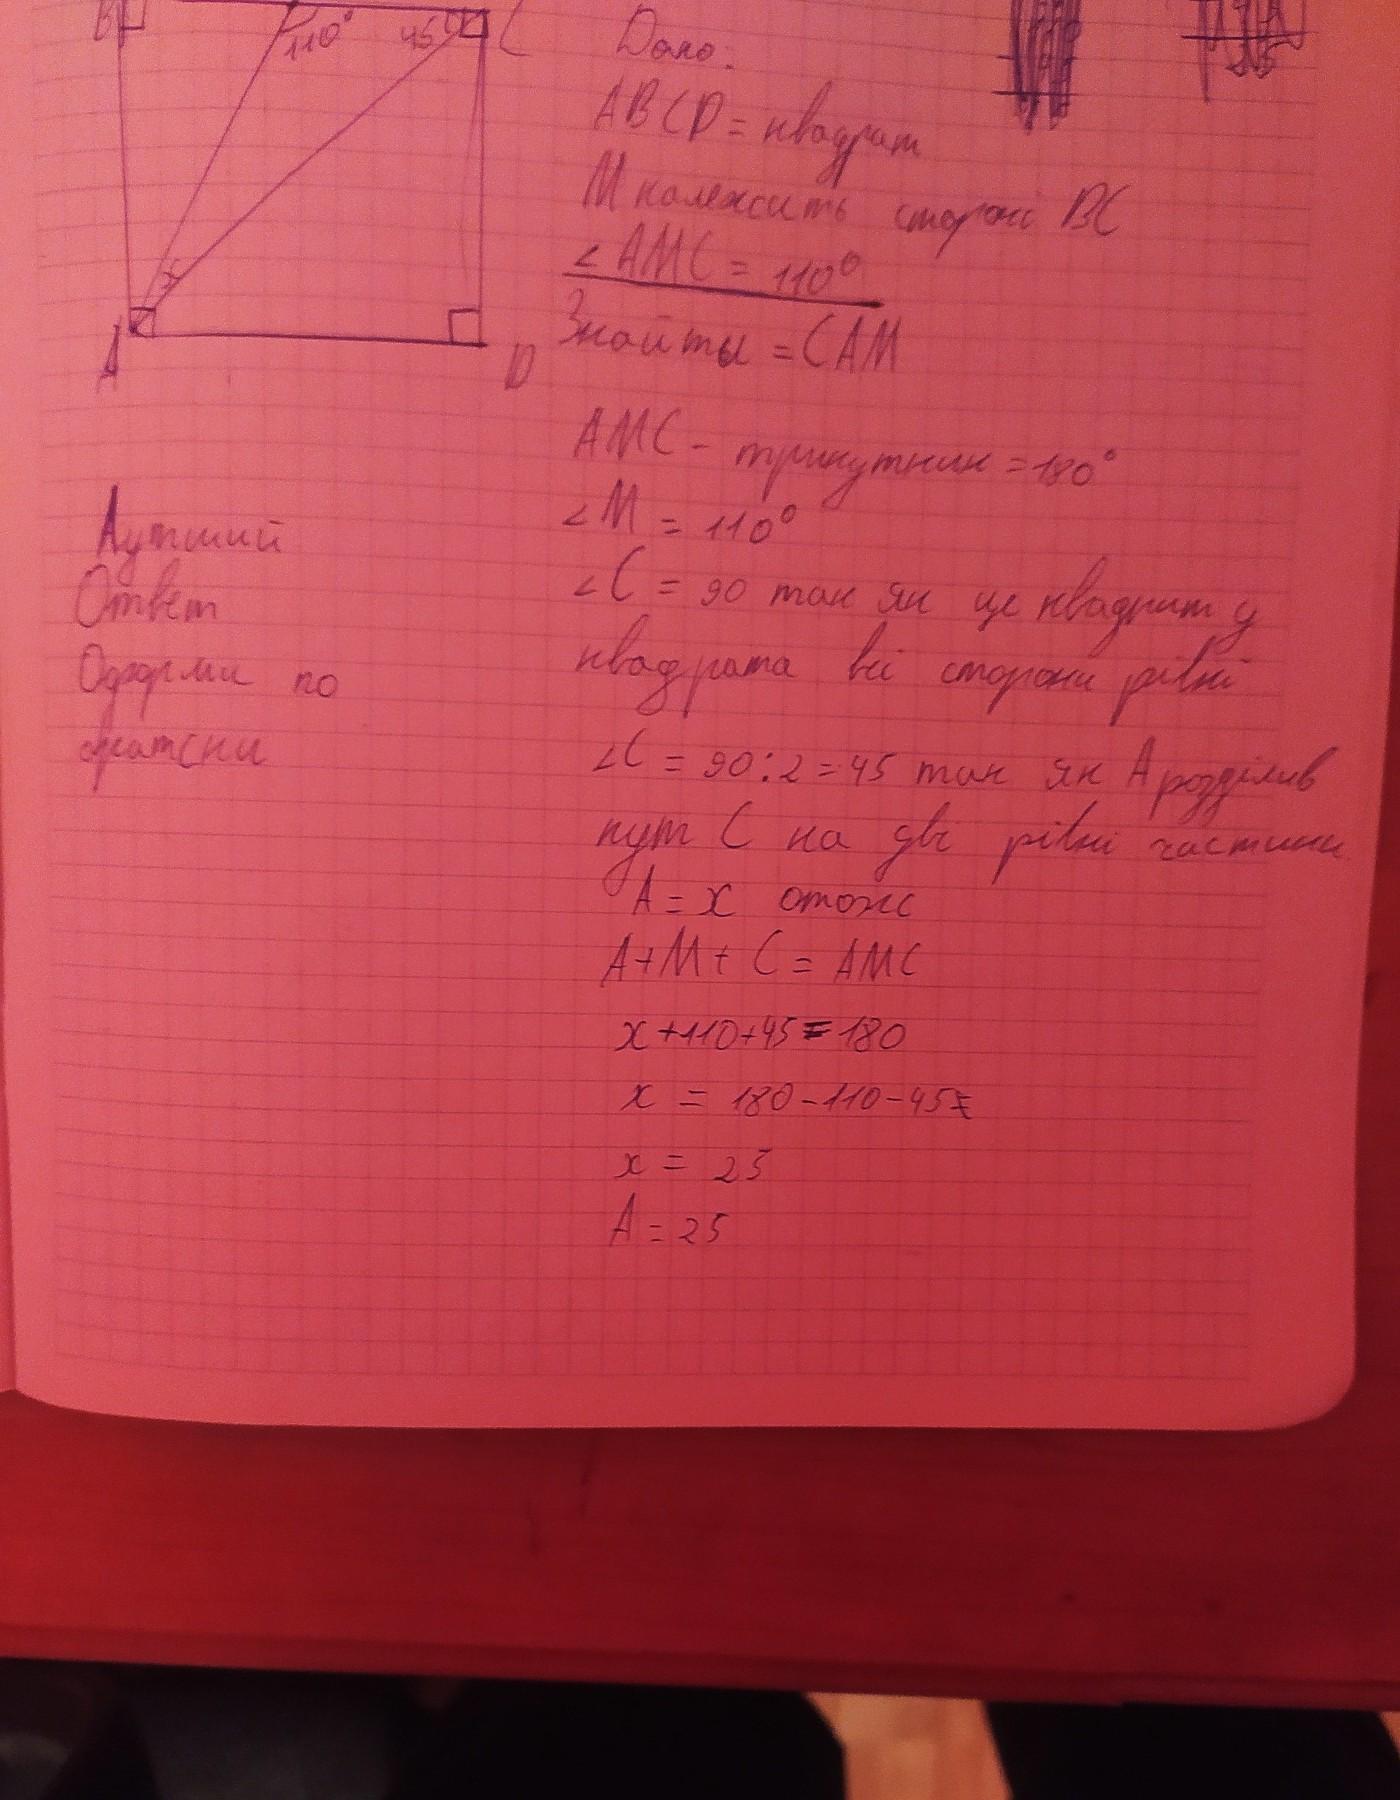 B
110°
45°
C
x
A
D
Дано:
ABCD = квадрат
М належить стороні BC
∠AMC = 110°
Знайты = CAM
AMC - трикутник = 180°
∠M = 110°
∠C = 90 так як це квадрат у
квадрата всі сторони рівні
∠C = 90:2 = 45 так як А розділив
кут С на дві рівні частини
A = x отже
A+M+C = AMC
x+110+45=180
x = 180-110-45=
x = 25
A = 25
Аутший
Ответ
Оформи по
братски